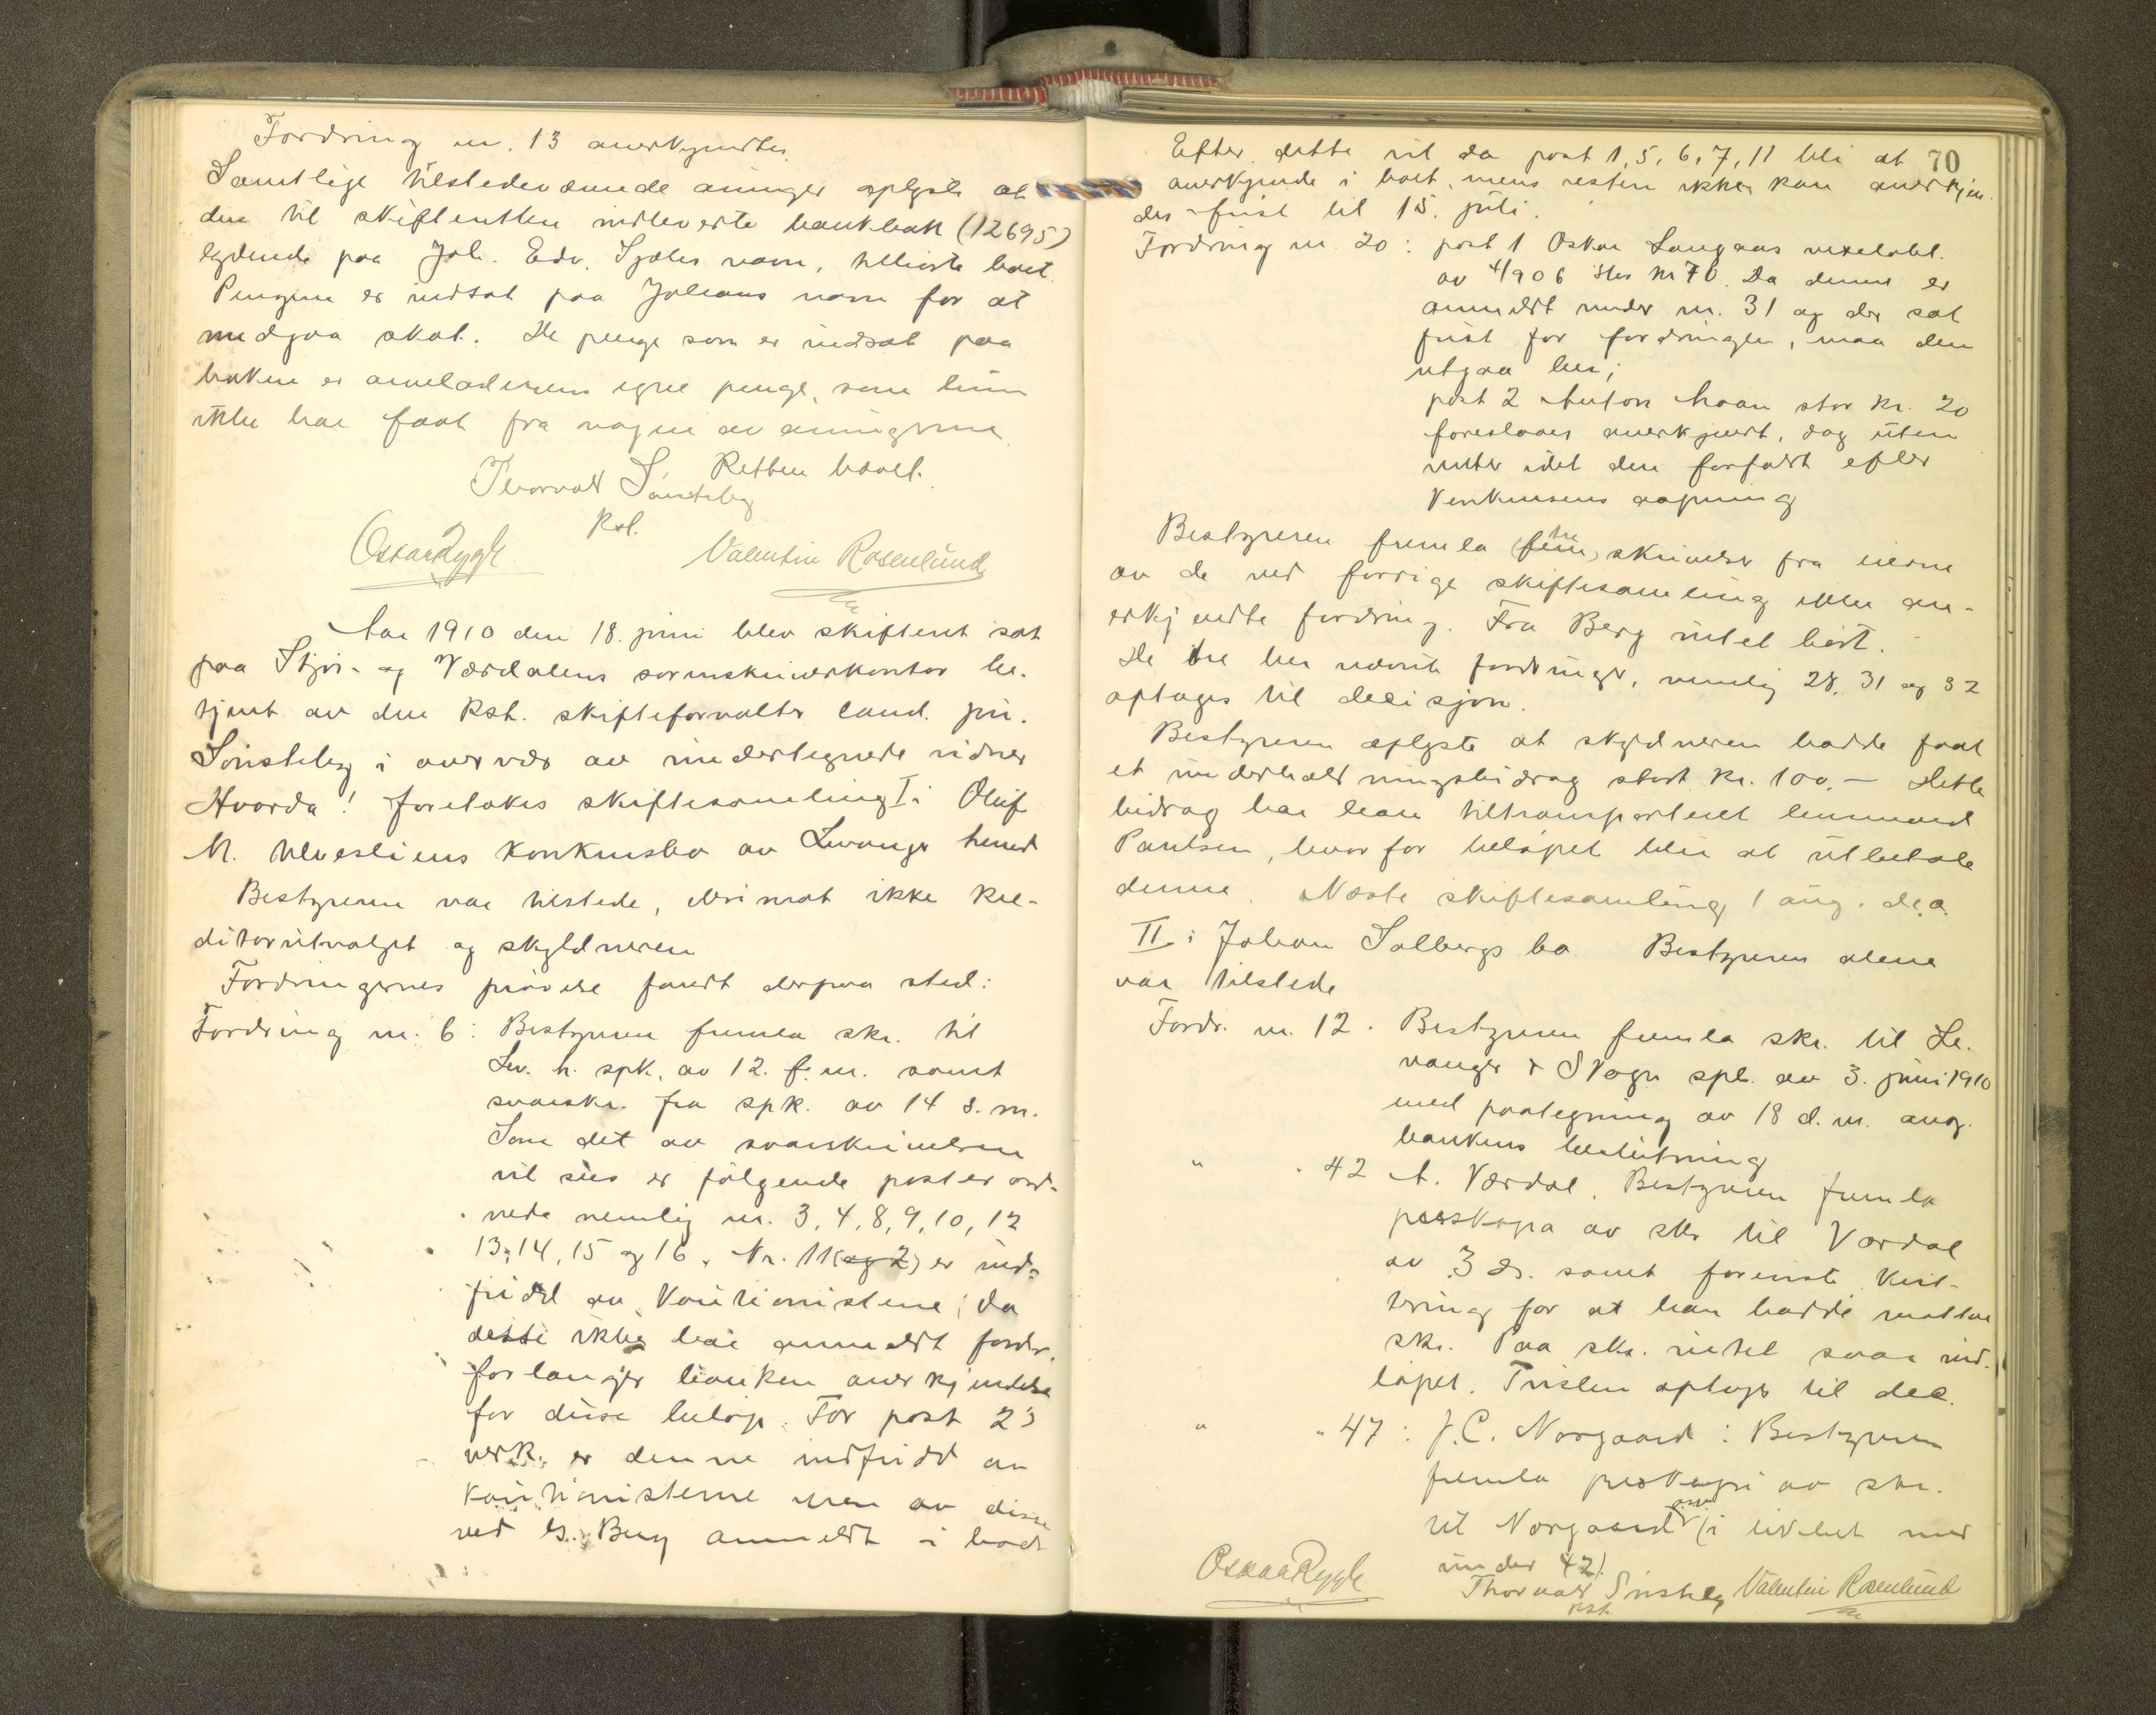 Fordring nr. 13 anerkjendtes.
Samtlige tilstedeværende arvinger oplyste at
den til skifteretten indleverte bankbok (12695)
lydende paa Joh. Edv. Sjøles navn, tilhørte boet.
Pengene er indsat paa Johans navn for at
undgaa skat. De penge som er indsat paa
boken er arveladerens egne penge, som hun
ikke har faat fra nogen av arvingerne.
Retten hævet.
Thorvald Sønsteby
Kst.
Oskar Rygh Valentin Rosenlund
Aar 1910 den 18. juni blev skifteret sat
paa Stjør- og Værdalens sorenskriverkontor be-
tjent av den kst. skifteforvalter cand. jur.
Sønsteby i overvær av undertegnede vidner
Hvorda! foretokes skiftesamling I i Oluf
M. konkursbo av Levanger herred
Bestyreren var tilstede, derimot ikke kre-
ditorutvalget og skyldneren
Fordringernes prøvelse fandt derpaa sted:
Fordring nr. 6: Bestyreren fremla skr. til
Lev. h. spk. av 12. f.m. samt
svarskr. fra spk. av 14 d.m.
Som det av svarskrivelsen
vil sees er følgende poster ord-
nede nemlig nr. 3, 4, 8, 9, 10, 12
13, 14, 15 og 16. Nr. 11 (og 2) er ind-
fridd av kautionistene; da
disse ikke har anmeldt fordr.
forlanger banken anerkjendelse
for disse beløp. For post 2's
verk. er denne indfridd av
kautionisterne men av disse
ved Berg anmeldt i boet
70
Efter dette vil da post 1, 5, 6, 7, 11 bli at
anerkjende i boet, mens resten ikke kan anerkjen-
des - frist til 15. juli.
Fordring nr. 20: post 1 Oskar Langaas vexelobl.
av 4/906 stor kr 70. Da denne er
anmeldt under nr. 31 og der sat
frist for fordringen, maa den
utgaa her;
post 2 Anton Moan stor kr. 20
foreslaaes anerkjendt, dog uten
renter idet den forfaldt efter
konkursens aapning
Bestyreren fremla (fem) tre skrivelser fra eierne
av de ved forrige skiftesamling ikke an-
erkjendte fordring. Fra Berg intet hørt.
De tre her nævnte fordringer, nemlig 28, 31 og 32
optages til decisjon.
Bestyreren oplyste at skyldneren hadde faat
et underholdningsbidrag stort kr. 100.- Dette
bidrag har han tiltransporteret lensmand
Paulsen, hvorfor beløpet blir at utbetale
denne. Næste skiftesamling 1 aug. d.a.
II i Johan Salbergs bo. Bestyreren alene
var tilstede
Fordr. nr. 12. Bestyreren fremla skr. til Le-
vanger & Skogn spb. av 3. juni 1910
med paategning av 18 d.m. ang.
bankens beslutning
" " 42 A. Værdal. Bestyreren fremla
av skr til Værdal
av 3 ds. samt forevist kvit-
tering for at han hadde mottat
skr. Paa skr. intet svar ind-
løpet. Tvisten optages til dec.
" " 47: J.C. Norgaard: Bestyreren
fremla av skr.
til Norgaard osv. (i likhet med
under 42).
Oskar Rygh Thorvald Sønsteby Valentin Rosenlund
kst.